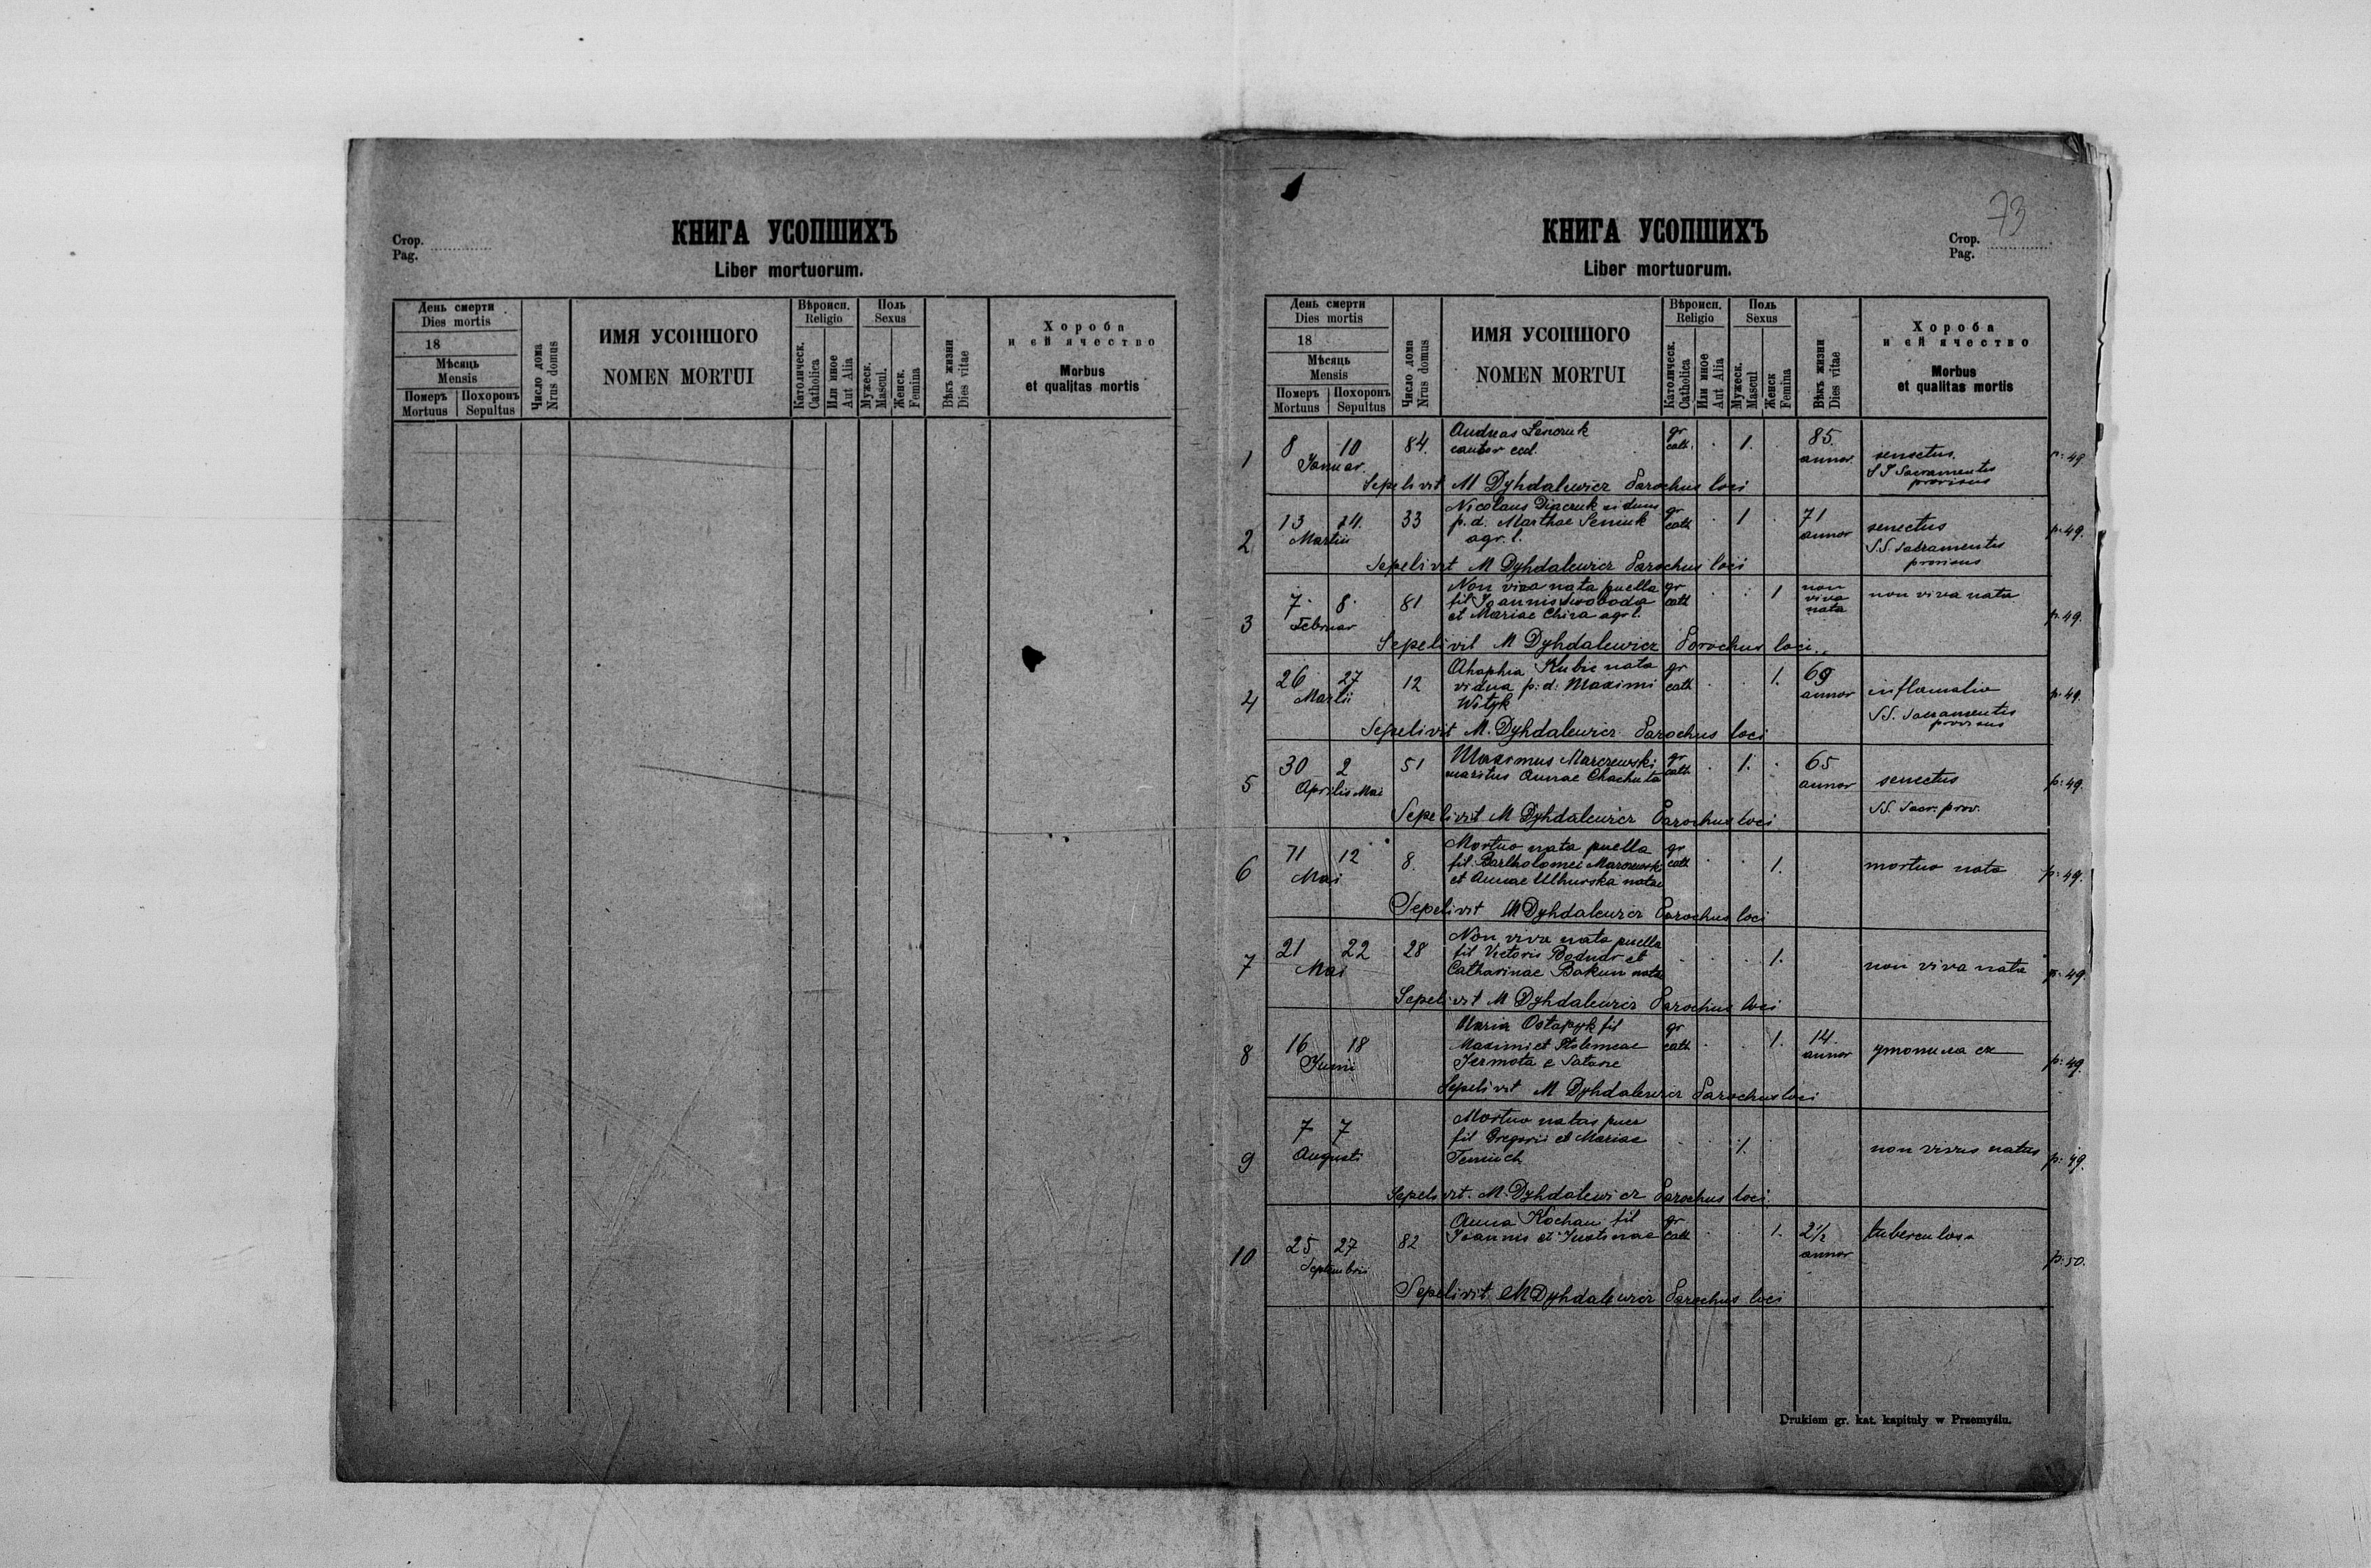 КНИГА УСОПШИХЪ
Стор.
Pag.
Liber mortuorum.
День смерти
Dies mortis
18
Мѣсяць
Mensis
Померъ
Mortuus
Похоронъ
Sepultus
Число дома
Nrus domus
ИМЯ УСОПШОГО
NOMEN MORTUI
Вѣроисп.
Religio
Католическ.
Catholica
Или иное
Aut Alia
Поль
Sexus
Мужеск.
Mascul.
Женск.
Femina
Вѣкъ жизни
Dies vitae
Хороба
и єй ячество
Morbus
et qualitas mortis
73
КНИГА УСОПШИХЪ
Стор.
Pag.
Liber mortuorum.
День смерти
Dies mortis
18
Мѣсяць
Mensis
Померъ
Mortuus
Похоронъ
Sepultus
Число дома
Nrus domus
ИМЯ УСОПШОГО
NOMEN MORTUI
Вѣроисп.
Religio
Католическ.
Catholica
Или иное
Aut Alia
Поль
Sexus
Мужеск.
Mascul
Женск
Femina
Вѣкъ жизни
Dies vitae
Хороба
и єй ячество
Morbus
et qualitas mortis
1 8 10 84. Andreas gr 1. 85.
Januar. cantor eccl. cath. annor senectus. p: 49
SS Sacramentis
provisus
Sepelivit M Dyhdalewicz Parochus loci
2 13 14. 33 Nicolaus Diaczuk viduus gr 1 71
Martii p. d. Marthae Seniuk cath annor senectus p. 49.
agr. l. S.S. Sacramentis
provisus
Sepelivit M Dyhdalewicz Parochus loci
3 7. 8. 81 Non viva nata puella gr 1 non viva nata non viva nata
Februar fil Joannis cath p. 49.
et Mariae Chira agr l.
Sepelivit M Dyhdalewicz Parochus loci
4 26 27 12 Ahaphia Kubic nata gr 1. 69
Martii vidua p: d: Maximi cath annor inflamatio p. 49.
Wityk SS. Sacramentis
provisus
Sepelivit M. Dyhdalewicz Parochus loci
5 30 2 51 Maximus Marczewski gr 1. 65
Aprilis Mai maritus Annae Chachuta cath annor senectus p: 49.
SS. Sacr. prov.
Sepelivit M Dyhdalewicz Parochus loci
6 11 12 8. Mortuo nata puella gr 1. mortuo nata p: 49.
Mai fil. Bartholomei cath
et Annae Uhurska natae
Sepelivit M Dyhdalewicz Parochus loci
7 21 22 28 Non viva nata puella 1. non viva nata p: 49.
Mai fil Victoris Bodnar et
Catharinae Bakun natae
Sepelivit M Dyhdalewicz Parochus loci
8 16 18 Maria Ostapyk fil gr 1. 14.
Junii Maximi et cath annor утопила ся p: 49.
Jermota e
Sepelivit M Dyhdalewicz Parochus loci
9 7 7 Mortuo natus puer 1. non vivus natus p: 49.
Augusti fil Gregorii et Mariae
Temnich
Sepelivit. M. Dyhdalewicz Parochus loci.
10 25 27 82 Anna Kochan fil gr 1. 2½ tuberculosa
Septembris Joannis et Justinae cath annor p: 50.
Sepelivit M Dyhdalewicz Parochus loci
Drukiem gr. kat. kapituły w Przemyślu.